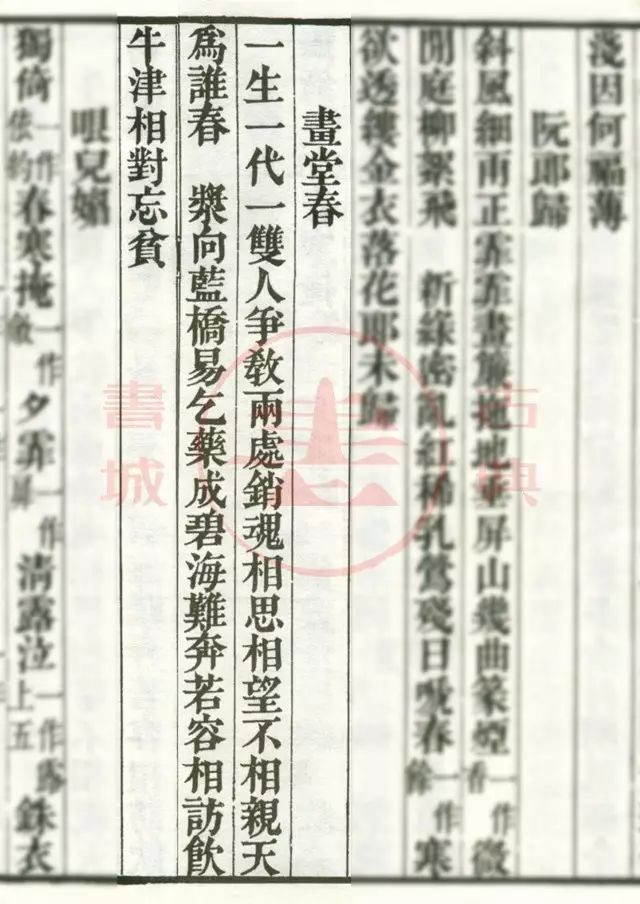 淺因何福薄
阮郎歸
斜風細雨正霏霏畫簾拖地垂屏山幾曲篆煙一作香微
閒庭柳絮飛　新綠密亂紅稀乳鶯殘日啼春一作餘寒
欲透縷金衣落花郎未歸
畫堂春
一生一代一雙人爭敎兩處銷魂相思相望不相親天
爲誰春　漿向藍橋易乞藥成碧海難奔若容相訪飮
牛津相對忘貧
眼兒媚
獨倚一作依約春寒掩一作斂夕霏一作扉清露泣一作露上五銖衣
古典
書城